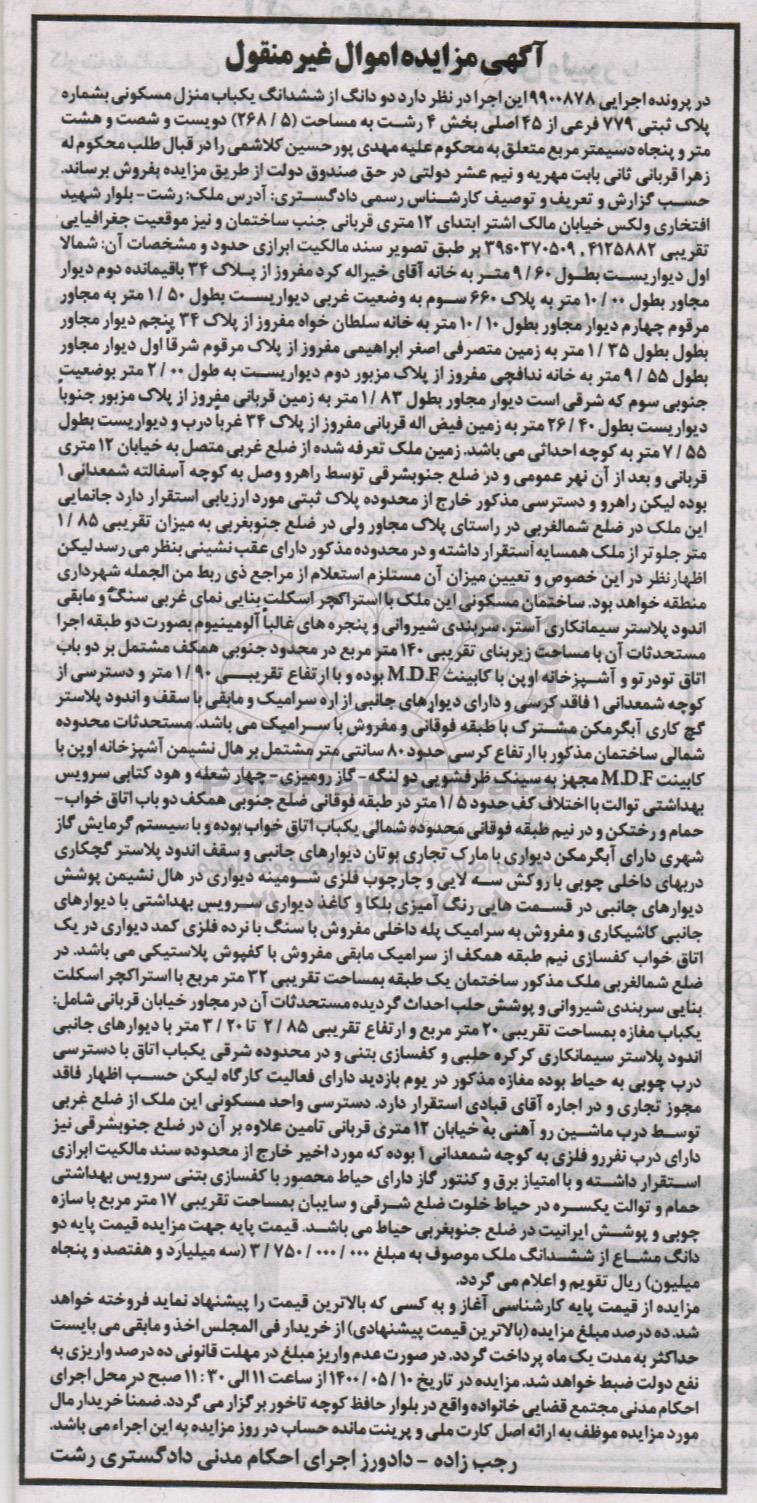 آگهی مزایده اموال غیر منقول
در پرونده اجرایی ۹۹۰۰۸۷۸ این اجرا در نظر دارد دو دانگ از ششدانگ یکباب منزل مسکونی بشماره
پلاک ثبتی ۷۷۹ فرعی از ۴۵ اصلی بخش ۴ رشت به مساحت (۲۶۸/۵) دویست و شصت و هشت
متر و پنجاه دسیمتر مربع متعلق به محکوم علیه مهدی پورحسین کلاشمی را در قبال طلب محکوم له
زهرا قربانی ثانی بابت مهریه و نیم عشر دولتی در حق صندوق دولت از طریق مزایده بفروش برساند.
حسب گزارش و تعریف و توصیف کارشناس رسمی دادگستری: آدرس ملک: رشت- بلوار شهید
افتخاری ولکس خیابان مالک اشتر ابتدای ۱۲ متری قربانی جنب ساختمان و نیز موقعیت جغرافیایی
تقریبی ۴۱۲۵۸۸۲ , ۳۹s۰۳۷۰۵۰۹ بر طبق تصویر سند مالکیت ابرازی حدود و مشخصات آن: شمالا
اول دیواریست بطول ۹/۶۰ متر به خانه آقای خیراله کرد مفروز از پلاک ۳۴ باقیمانده دوم دیوار
مجاور بطول ۱۰/۰۰ متر به پلاک ۶۶۰ سوم به وضعیت غربی دیواریست بطول ۱/۵۰ متر به مجاور
مرقوم چهارم دیوار مجاور بطول ۱۰/۱۰ متر به خانه سلطان خواه مفروز از پلاک ۳۴ پنجم دیوار مجاور
بطول بطول ۱/۳۵ متر به زمین متصرفی اصغر ابراهیمی مفروز از پلاک مرقوم شرقا اول دیوار مجاور
بطول ۹/۵۵ متر به خانه ندافچی مفروز از پلاک مزبور دوم دیواریست به طول ۲/۰۰ متر بوضعیت
جنوبی سوم که شرقی است دیوار مجاور بطول ۱/۸۳ متر به زمین قربانی مفروز از پلاک مزبور جنوباً
دیواریست بطول ۲۶/۴۰ متر به زمین فیض اله قربانی مفروز از پلاک ۳۴ غرباً درب و دیواریست بطول
۷/۵۵ متر به کوچه احداثی می باشد. زمین ملک تعرفه شده از ضلع غربی متصل به خیابان ۱۲ متری
قربانی و بعد از آن نهر عمومی و در ضلع جنوبشرقی توسط راهرو وصل به کوچه آسفالته شمعدانی ۱
بوده لیکن راهرو و دسترسی مذکور خارج از محدوده پلاک ثبتی مورد ارزیابی استقرار دارد جانمایی
این ملک در ضلع شمالغربی در راستای پلاک مجاور ولی در ضلع جنوبغربی به میزان تقریبی ۱/۸۵
متر جلوتر از ملک همسایه استقرار داشته و در محدوده مذکور دارای عقب نشینی بنظر می رسد لیکن
اظهار نظر در این خصوص و تعیین میزان آن مستلزم استعلام از مراجع ذی ربط من الجمله شهرداری
منطقه خواهد بود. ساختمان مسکونی این ملک با استراکچر اسکلت بنایی نمای غربی سنگ و مابقی
اندود پلاستر سیمانکاری آستر، سربندی شیروانی و پنجره های غالباً آلومینیوم بصورت دو طبقه اجرا
مستحدثات آن با مساحت زیربنای تقریبی ۱۴۰ متر مربع در محدود جنوبی همکف مشتمل بر دو باب
اتاق تودرتو و آشپزخانه اوپن با کابینت M.D.F بوده و با ارتفاع تقریبی ۱/۹۰ متر و دسترسی از
کوچه شمعدانی ۱ فاقد کرسی و دارای دیوارهای جانبی از اره سرامیک و مابقی با سقف و اندود پلاستر
گچ کاری آبگرمکن مشترک با طبقه فوقانی و مفروش با سرامیک می باشد. مستحدثات محدوده
شمالی ساختمان مذکور با ارتفاع کرسی حدود ۸۰ سانتی متر مشتمل بر هال نشیمن آشپزخانه اوپن با
کابینت M.D.F مجهز به سینک ظرفشویی دو لنگه- گاز رومیزی- چهار شعله و هود کتابی سرویس
بهداشتی توالت با اختلاف کف حدود ۱/۵ متر در طبقه فوقانی ضلع جنوبی همکف دو باب اتاق خواب-
حمام و رختکن و در نیم طبقه فوقانی محدوده شمالی یکباب اتاق خواب بوده و با سیستم گرمایش گاز
شهری دارای آبگرمکن دیواری با مارک تجاری بوتان دیوارهای جانبی و سقف اندود پلاستر گچکاری
دربهای داخلی چوبی با روکش سه لایی و چارچوب فلزی شومینه دیواری در هال نشیمن پوشش
دیوارهای جانبی در قسمت هایی رنگ آمیزی بلکا و کاغذ دیواری سرویس بهداشتی با دیوارهای
جانبی کاشیکاری و مفروش به سرامیک پله داخلی مفروش با سنگ با نرده فلزی کمد دیواری در یک
اتاق خواب کفسازی نیم طبقه همکف از سرامیک مابقی مفروش با کفپوش پلاستیکی می باشد. در
ضلع شمالغربی ملک مذکور ساختمان یک طبقه بمساحت تقریبی ۳۲ متر مربع با استراکچر اسکلت
بنایی سربندی شیروانی و پوشش حلب احداث گردیده مستحدثات آن در مجاور خیابان قربانی شامل:
یکباب مغازه بمساحت تقریبی ۲۰ متر مربع و ارتفاع تقریبی ۲/۸۵ تا ۳/۲۰ متر با دیوارهای جانبی
اندود پلاستر سیمانکاری کرکره حلبی و کفسازی بتنی و در محدوده شرقی یکباب اتاق با دسترسی
درب چوبی به حیاط بوده مغازه مذکور در یوم بازدید دارای فعالیت کارگاه لیکن حسب اظهار فاقد
مجوز تجاری و در اجاره آقای قبادی استقرار دارد. دسترسی واحد مسکونی این ملک از ضلع غربی
توسط درب ماشین رو آهنی به خیابان ۱۲ متری قربانی تامین علاوه بر آن در ضلع جنوبشرقی نیز
دارای درب نفررو فلزی به کوچه شمعدانی ۱ بوده که مورد اخیر خارج از محدوده سند مالکیت ابرازی
استقرار داشته و با امتیاز برق و کنتور گاز دارای حیاط محصور با کفسازی بتنی سرویس بهداشتی
حمام و توالت یکسره در حیاط خلوت ضلع شرقی و سایبان بمساحت تقریبی ۱۷ متر مربع با سازه
چوبی و پوشش ایرانیت در ضلع جنوبغربی حیاط می باشد. قیمت پایه جهت مزایده قیمت پایه دو
دانگ مشاع از ششدانگ ملک موصوف به مبلغ ۳/۷۵۰/۰۰۰/۰۰۰ (سه میلیارد و هفتصد و پنجاه
میلیون) ریال تقویم و اعلام می گردد.
مزایده از قیمت پایه کارشناسی آغاز و به کسی که بالاترین قیمت را پیشنهاد نماید فروخته خواهد
شد. ده درصد مبلغ مزایده (بالاترین قیمت پیشنهادی) از خریدار فی المجلس اخذ و مابقی می بایست
حداکثر به مدت یک ماه پرداخت گردد. در صورت عدم واریز مبلغ در مهلت قانونی ده درصد واریزی به
نفع دولت ضبط خواهد شد. مزایده در تاریخ ۱۴۰۰/۰۵/۱۰ از ساعت ۱۱ الی ۱۱:۳۰ صبح در محل اجرای
احکام مدنی مجتمع قضایی خانواده واقع در بلوار حافظ کوچه تاخور برگزار می گردد. ضمنا خریدار مال
مورد مزایده موظف به ارائه اصل کارت ملی و پرینت مانده حساب در روز مزایده به این اجراء می باشد.
رجب زاده - دادورز اجرای احکام مدنی دادگستری رشت